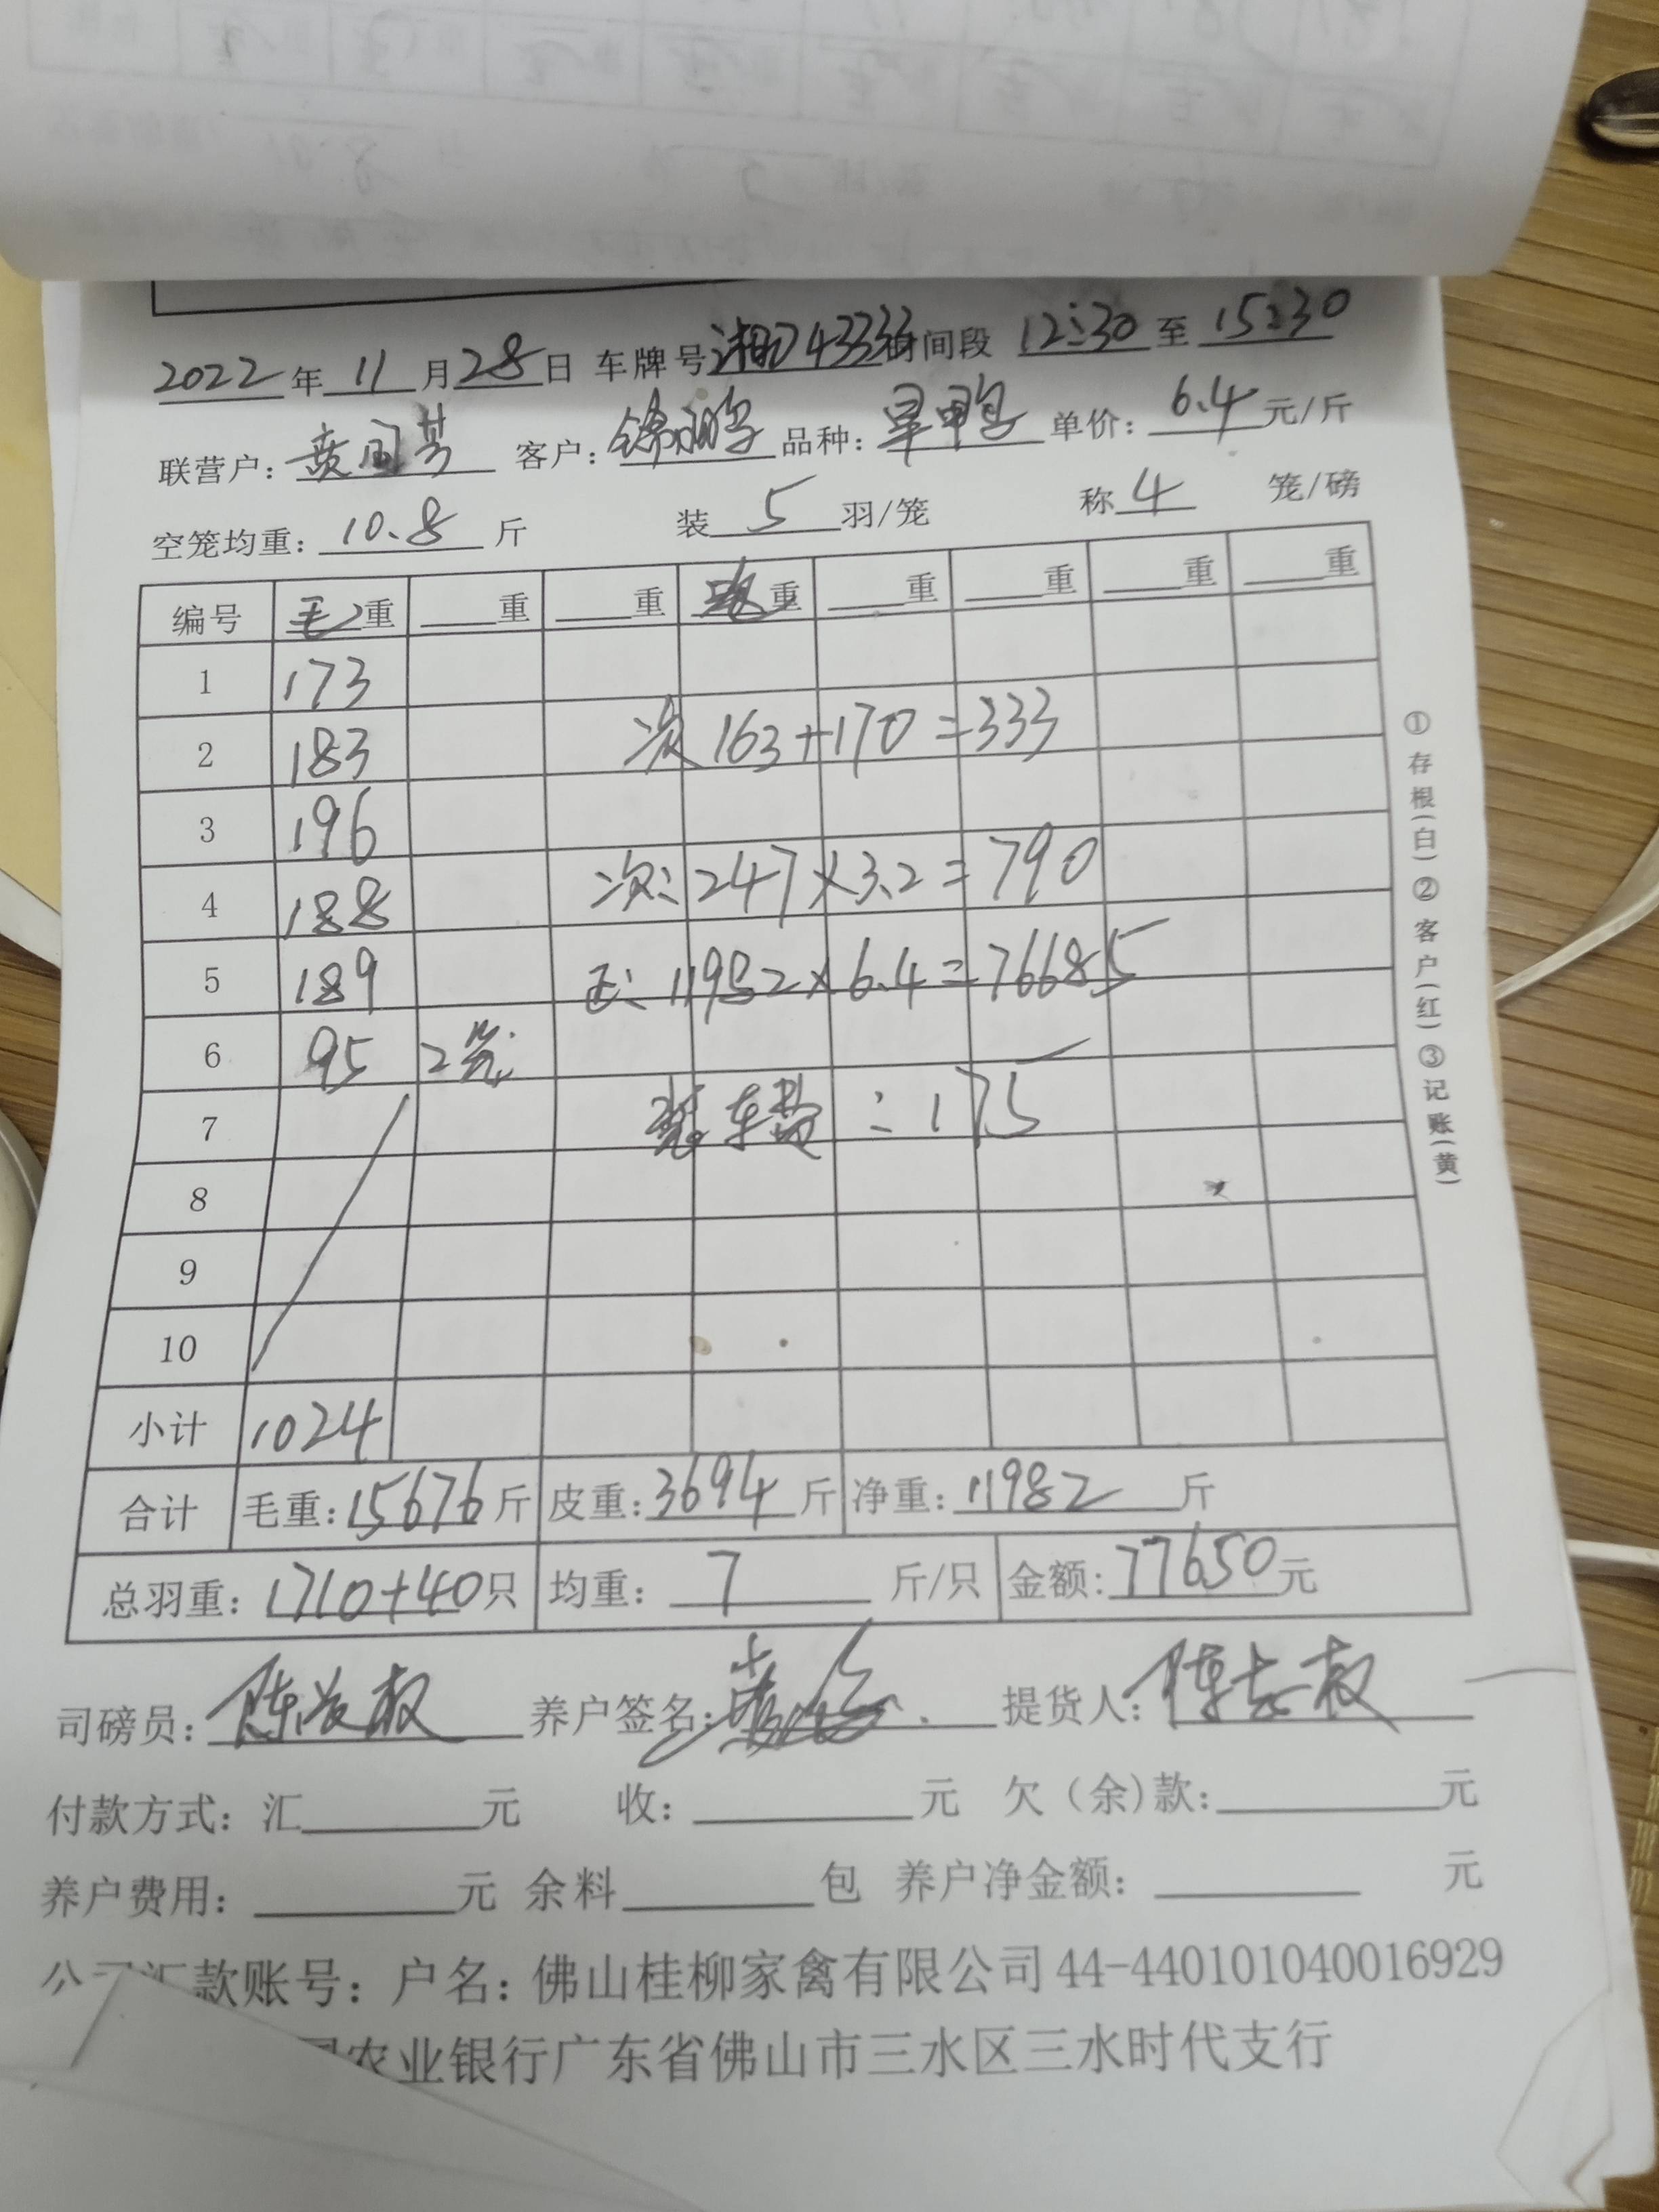 2022年11月28日 车牌号湘D43333时间段 12:30至15:30
联营户: 黄国芳 客户: 品种: 旱鸭 单价: 6.4元/斤
空笼均重: 10.8斤 装5羽/笼 称4笼/磅
编号 毛重 重 重 重 重 重 重 重
1 173
2 183 次 163+170=333
3 196
4 188 次: 247×3.2=790
5 189 正: 11982×6.4=76685
6 95 2笼
7 装车费: 175
8
9
10
小计 1024
合计 毛重: 15676斤 皮重: 3694斤 净重: 11982斤
总羽重: 1710+40只 均重: 7斤/只 金额: 77650元
司磅员: 养户签名: 提货人:
付款方式: 汇元 收: 元 欠(余)款: 元
养户费用: 元 余料包 养户净金额: 元
款账号: 户名: 佛山桂柳家禽有限公司44-440101040016929
农业银行广东省佛山市三水区三水时代支行
①存根(白)②客户(红)③记账(黄)